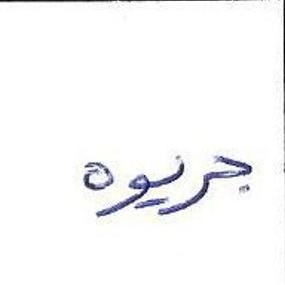 جريوه